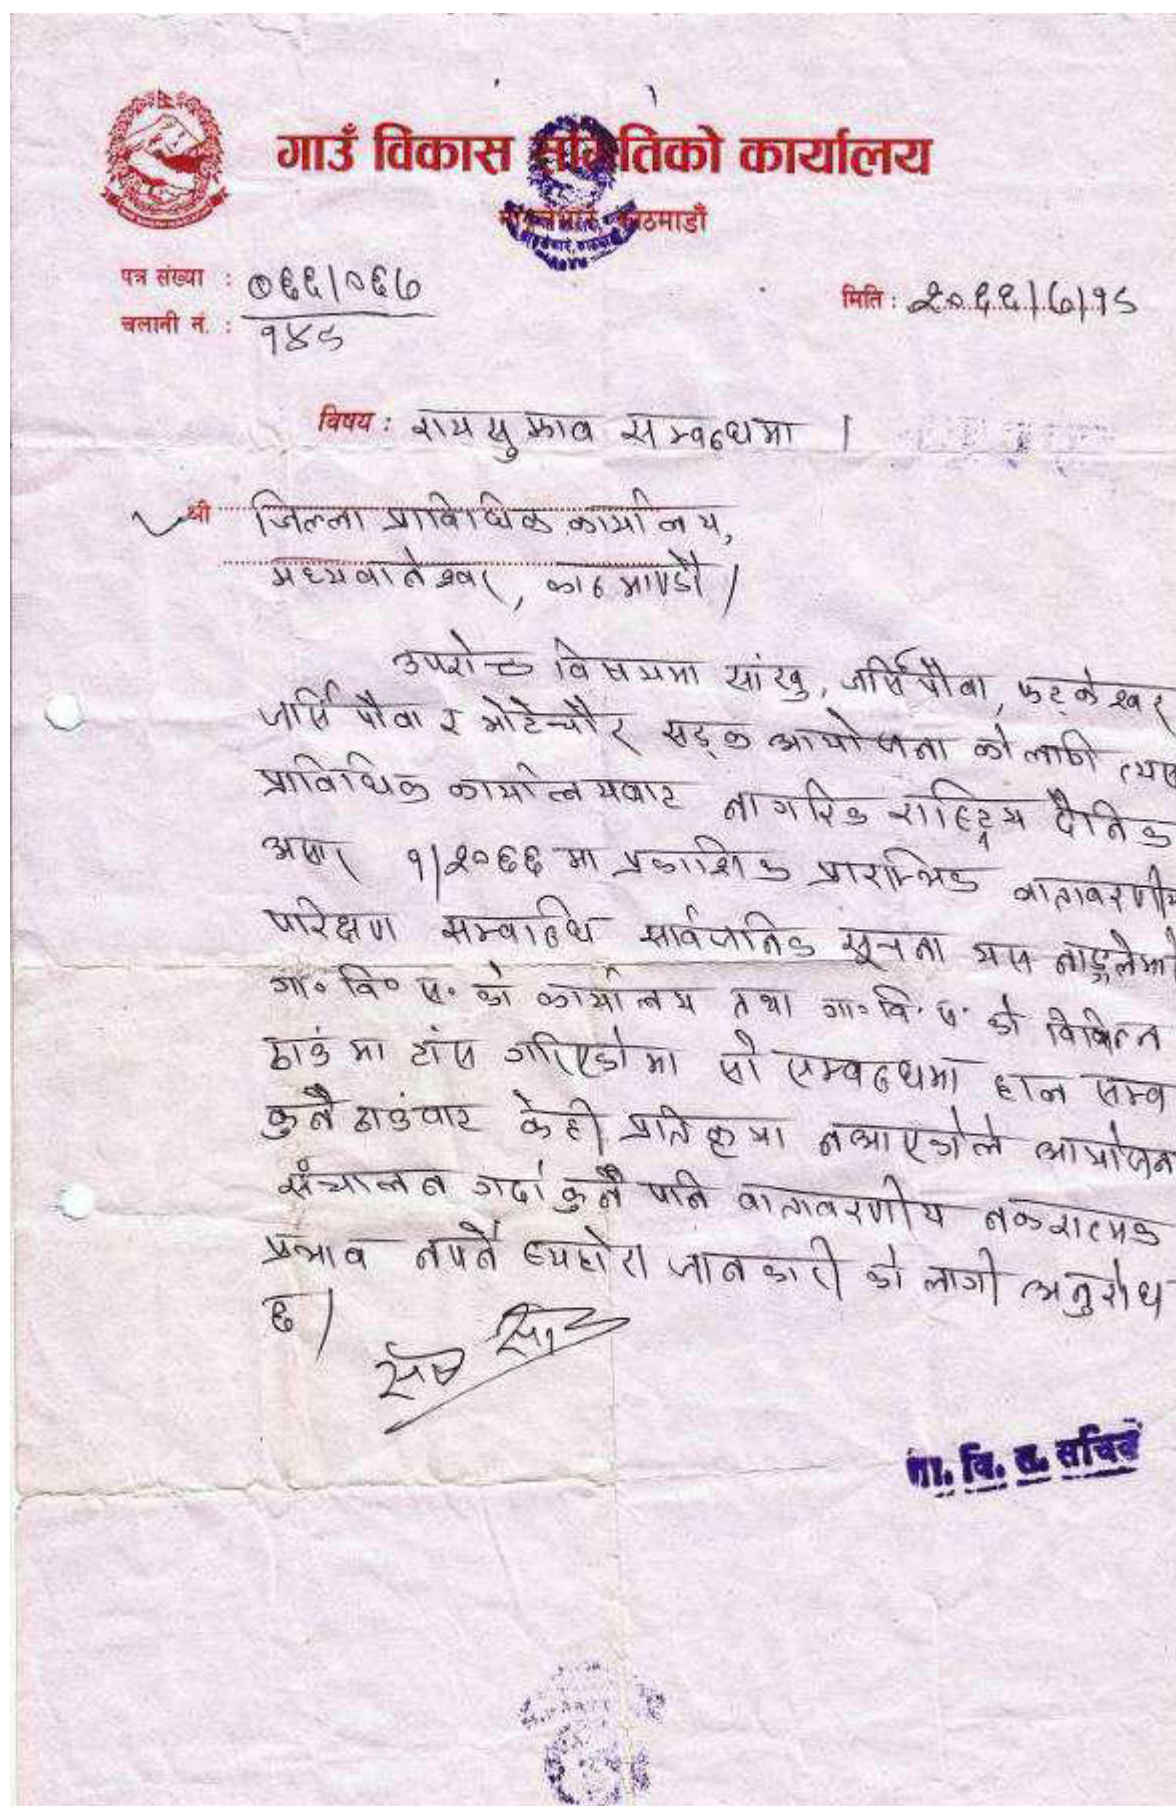 गाउँ विकास समितिको कार्यालय
काठमाडौँ
पत्र संख्या : ०६६।०६७
मिति : २०६६।७।१८
चलानी नं. : १४८
विषय : रायसुझाव सम्बन्धमा ।
श्री जिल्ला प्राविधिक कार्यालय,
मध्यवानेश्वर, काठमाण्डौ ।
उपरोक्त विषयमा सांखु, जर्सिपौवा, फट्केश्वर
जर्सिपौवा र भोटेचौर सड्क आयोजना को लागी त्यस
प्राविधिक कार्यालयबाट नागरिक राष्ट्रिय दैनिक
असार १।२०६६ मा प्रकाशिक प्रारम्भिक वातावरणीय
परिक्षण सम्बन्धि सार्वजनिक सूचना यस नाङ्लेभारे
गा॰ वि॰ स॰ को कार्यालय तथा गा॰ वि. स. को विभिन्न
ठाउं मा टांस गरिएकोमा सो सम्बन्धमा हाल सम्म
कुनै ठाउंबाट केही प्रतिकृया नआएकोले आयोजना
संचालन गर्दा कुनै पनि वातावरणीय नकरात्मक
प्रभाव नपर्ने व्यहोरा जानकारी को लागी अनुरोध
छ ।
गा. वि. स. सचिव